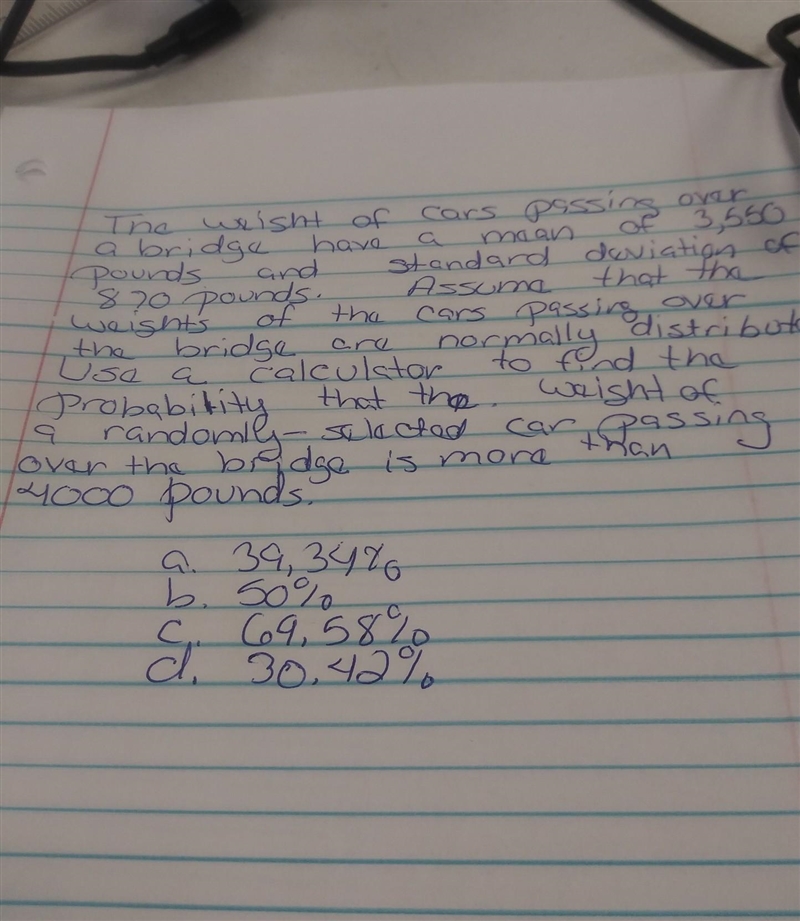 The weisht of cars passing over
a bridge have a mean of 3,550
pounds and standard deviation of
870 pounds. Assume that the
weights of the cars passing over
the bridge are normally distribute
Use a calculator to find the
probability that the. weisht of
a randomly-selected car passing
over the bridge is more than
4000 pounds.
a. 39,34%
b. 50%
c. 69,58%
d. 30.42%